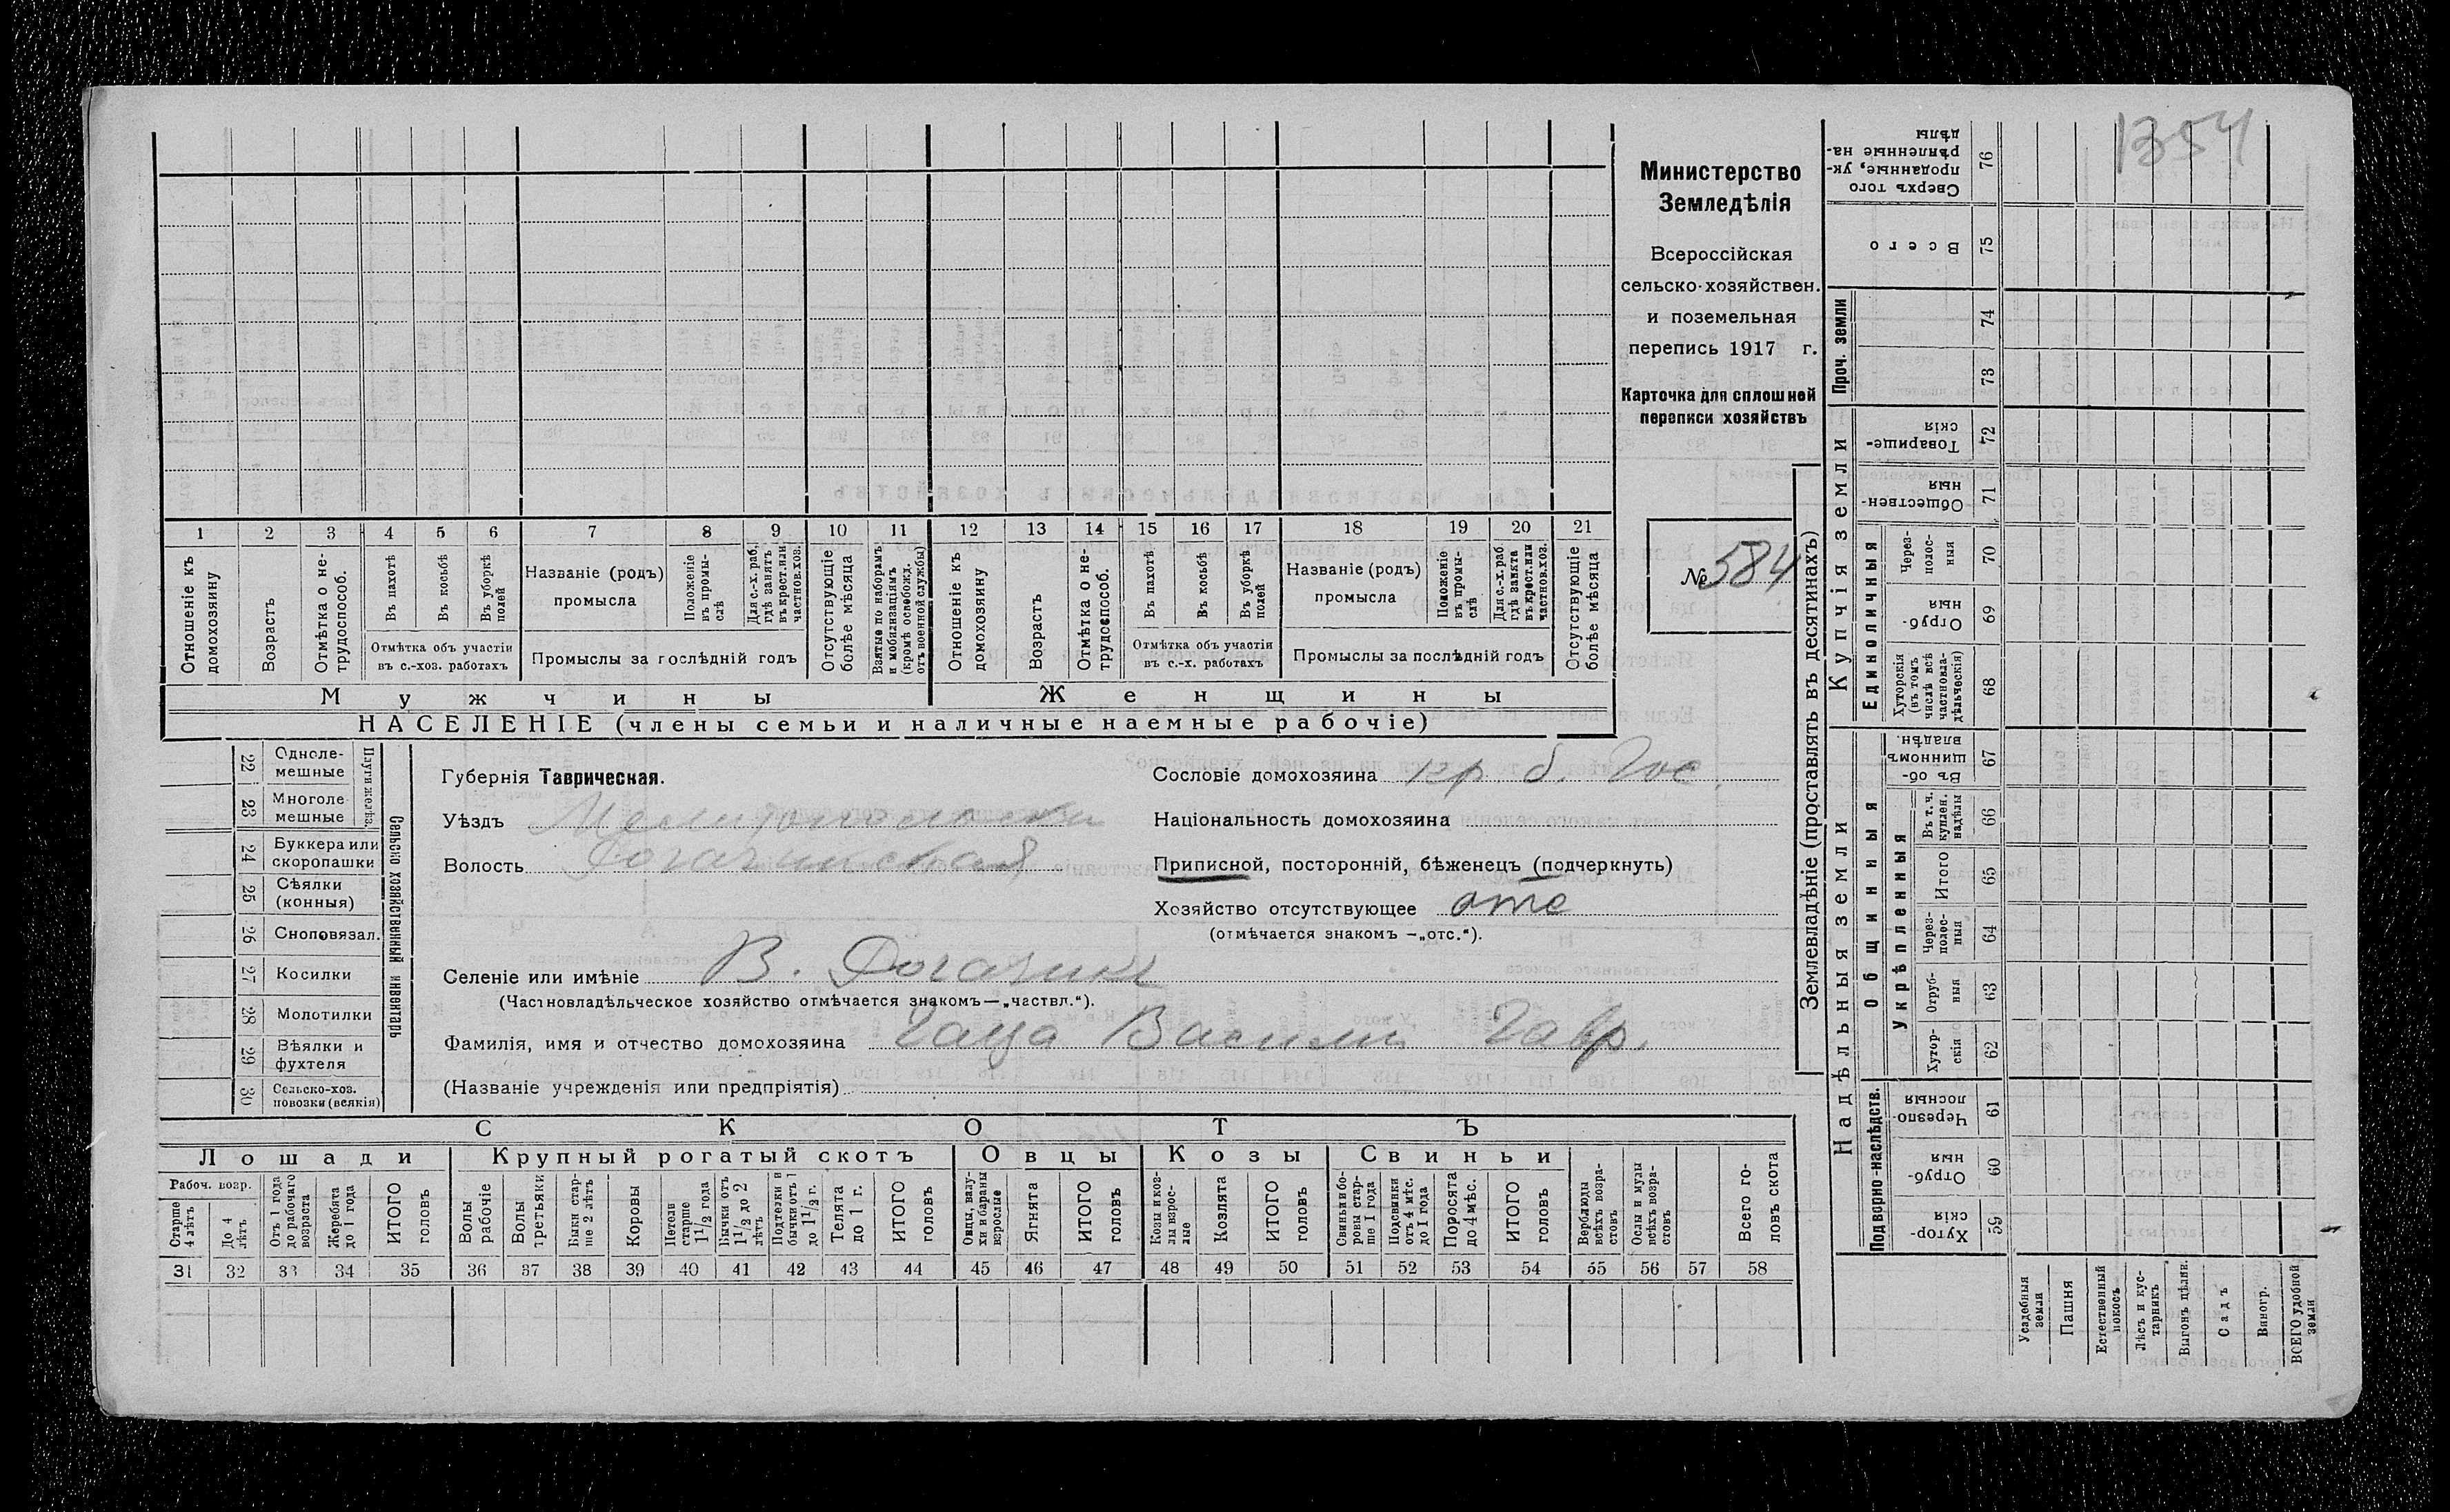 1354
Министерство
Земледѣлія
Всероссійская
сельско-хозяйствен.
и поземельная
перепись 1917 г.
Карточка для сплошной
переписи хозяйствъ
№ 584
1 2 3 4 5 6 7 8 9 10 11 12 13 14 15 16 17 18 19 20 21
Отношеніе къ домохозяину
Возрастъ
Отмѣтка о не-трудоспособ.
Въ пахотѣ
Въ косьбѣ
Въ уборкѣ полей
Отмѣтка объ участіи
въ с.-хоз. работахъ
Названіе (родъ)
промысла
Положеніе въ промы-слѣ
Для с.-х. раб. гдѣ занятъ въ крест. или частнов. хоз.
Промыслы за послѣдній годъ
Отсутствующіе болѣе мѣсяца
Взятые по наборамъ и мобилизаціямъ (кромѣ освобожд. отъ военной службы)
Отношеніе къ домохозяину
Возрастъ
Отмѣтка о не-трудоспособ.
Въ пахотѣ
Въ косьбѣ
Въ уборкѣ полей
Отмѣтка объ участіи
въ с.-х. работахъ
Названіе (родъ)
промысла
Положеніе въ промы-слѣ
Для с.-х. раб. гдѣ занята въ крест. или частнов. хоз.
Промыслы за послѣдній годъ
Отсутствующіе болѣе мѣсяца
Мужчины
Женщины
НАСЕЛЕНІЕ (члены семьи и наличные наемные рабочіе)
Сельско хозяйственный инвентарь
Плуги желѣз.
22 Одноле-мешные
23 Многоле мешные
24 Буккера или скоропашки
25 Сѣялки (конныя)
26 Сноповязал.
27 Косилки
28 Молотилки
29 Вѣялки и фухтеля
30 Сельско-хоз. повозки (всякія)
Губернія Таврическая.
Уѣздъ Мелитопольскій
Волость Рогачинская
Селеніе или имѣніе В. Рогачикъ
(Частновладѣльческое хозяйство отмѣчается знакомъ—„частвл.“).
Фамилія, имя и отчество домохозяина Василій Гавр.
(Названіе учрежденія или предпріятія)
Сословіе домохозяина кр. б. Гос.
Національность домохозяина
Приписной, посторонній, бѣженецъ (подчеркнуть)
Хозяйство отсутствующее отс
(отмѣчается знакомъ —„отс.“).
СКОТЪ
Лошади
Крупный рогатый скотъ
Овцы
Козы
Свиньи
Рабоч. возр.
Старше 4 лѣтъ
До 4 лѣтъ
Отъ 1 года до рабочаго возраста
Жеребята до 1 года
ИТОГО головъ
Волы рабочіе
Волы третьяки
Быки стар-ше 2 лѣтъ
Коровы
Нетели старше 1½ года
Бычки отъ 1½ до 2 лѣтъ
Подтелки и бычки отъ 1 до 1½ г.
Телята до 1 г.
ИТОГО головъ
Овцы, валу-хи и бараны взрослые
Ягнята
ИТОГО головъ
Козы и коз-лы взрос-лые
Козлята
ИТОГО головъ
Свиньи и бо-ровы стар-ше 1 года
Подсвинки отъ 4 мѣс. до 1 года
Поросята до 4 мѣс.
ИТОГО головъ
Верблюды всѣхъ возра-стовъ
Ослы и мулы всѣхъ возра-стовъ
Всего го-ловъ скота
31 32 33 34 35 36 37 38 39 40 41 42 43 44 45 46 47 48 49 50 51 52 53 54 55 56 57 58
Землевладѣніе (проставлять въ десятинахъ)
Надѣльныя земли
Купчія земли
Проч. земли
Подворно-наслѣдств.
Общинныя
Укрѣпленныя
Единоличныя
Сверхъ того проданные, ук-рѣпленные на-дѣлы 76
Всего 75
74
73
Товарище-скія 72
Обществен-ныя 71
Через-полос-ныя 70
Отруб-ныя 69
Хуторскія (въ томъ числѣ всѣ частновла-дѣльческія) 68
Въ об-щинномъ владѣн. 67
Въ т. ч. куплен. надѣлы 66
Итого 65
Через-полос-ныя 64
Отруб-ныя 63
Хутор-скія 62
Черезпо-лосныя 61
Отруб-ныя 60
Хутор-скія 59
Усадебныя земля
Пашня
Естественный покосъ
Лѣсъ и кус-тарникъ
Выгонъ цѣлин.
Садъ
Виногр.
ВСЕГО удобной земли